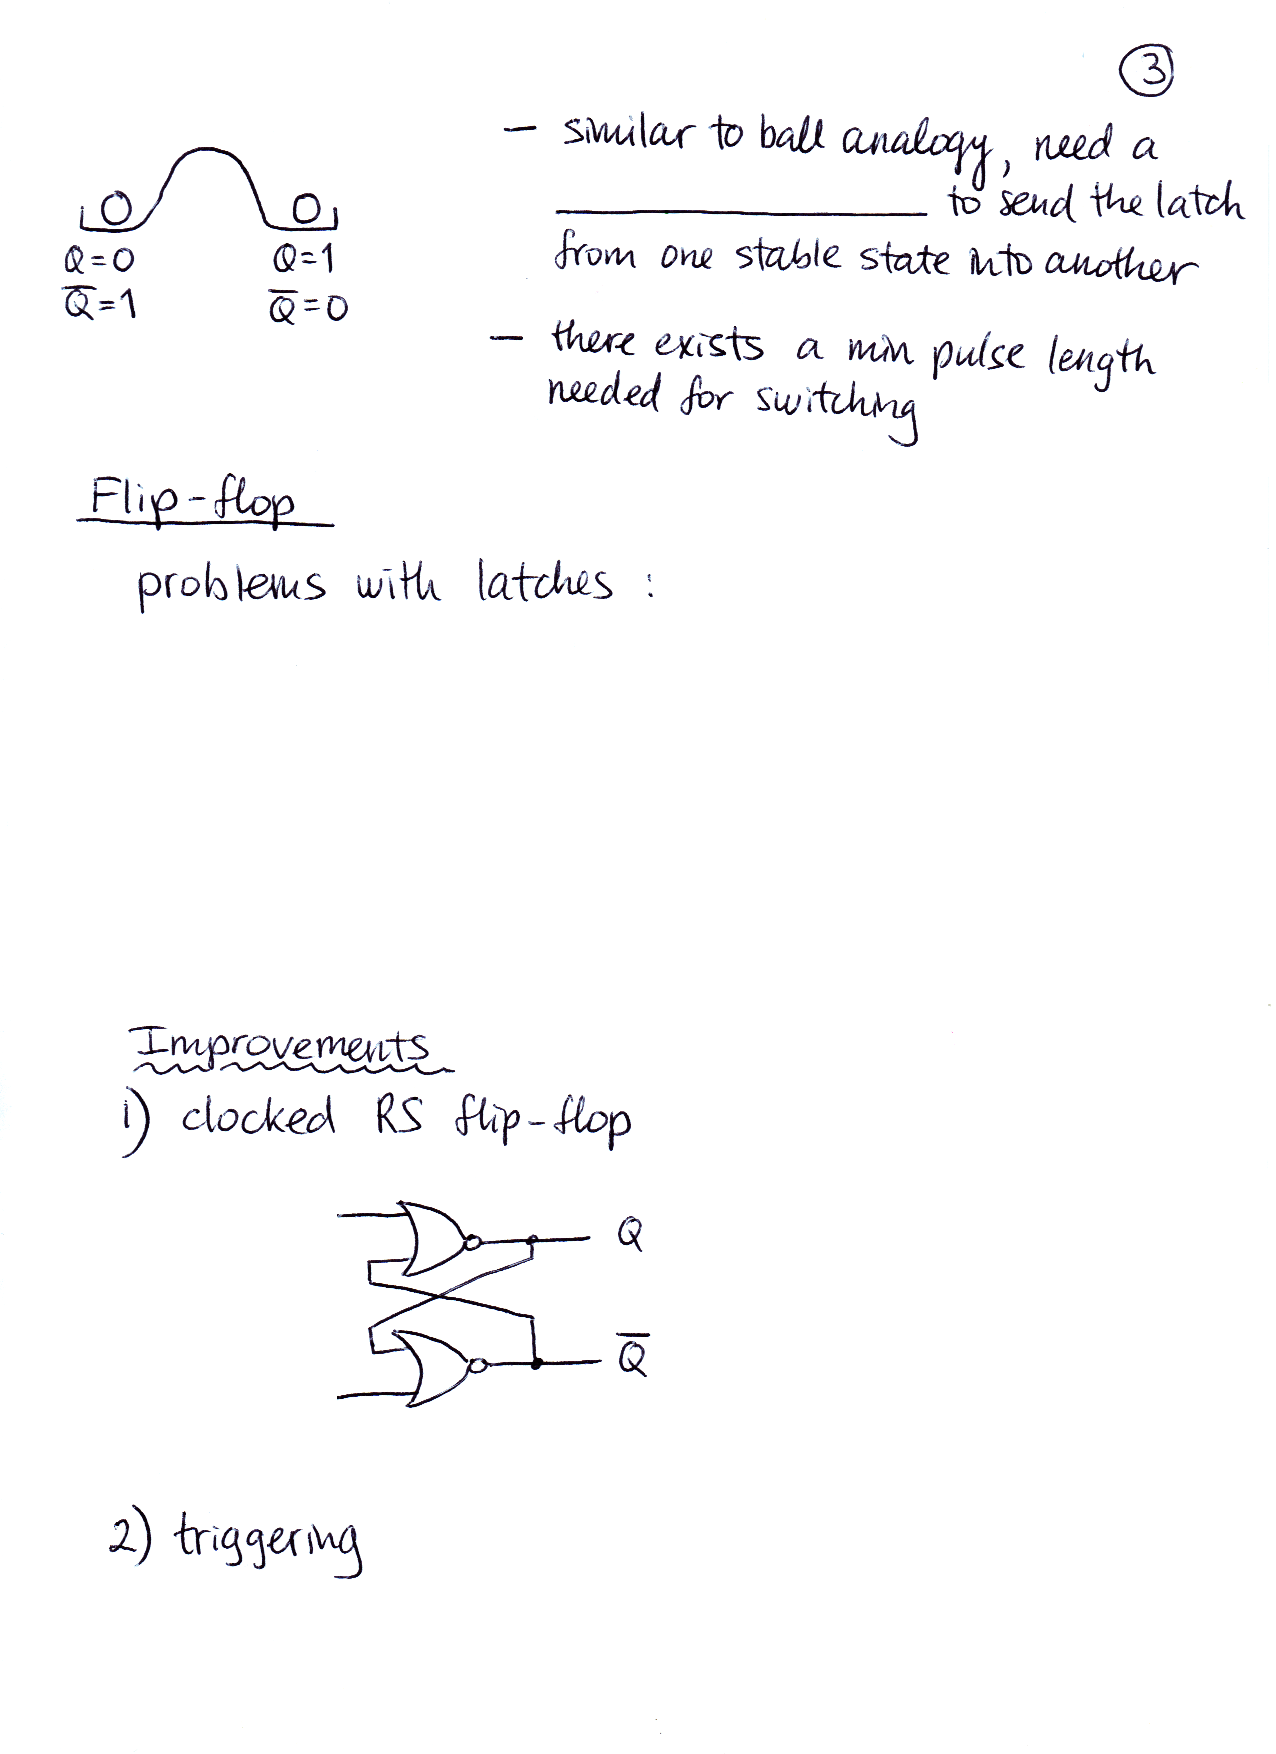 3
– similar to ball analogy, need a
__________ to send the latch
from one stable state into another
Q=0 Q=1
Q̅=1 Q̅=0
– there exists a min pulse length
needed for switching
Flip-flop
problems with latches :
Improvements
1) clocked RS flip-flop
Q
Q̅
2) triggering